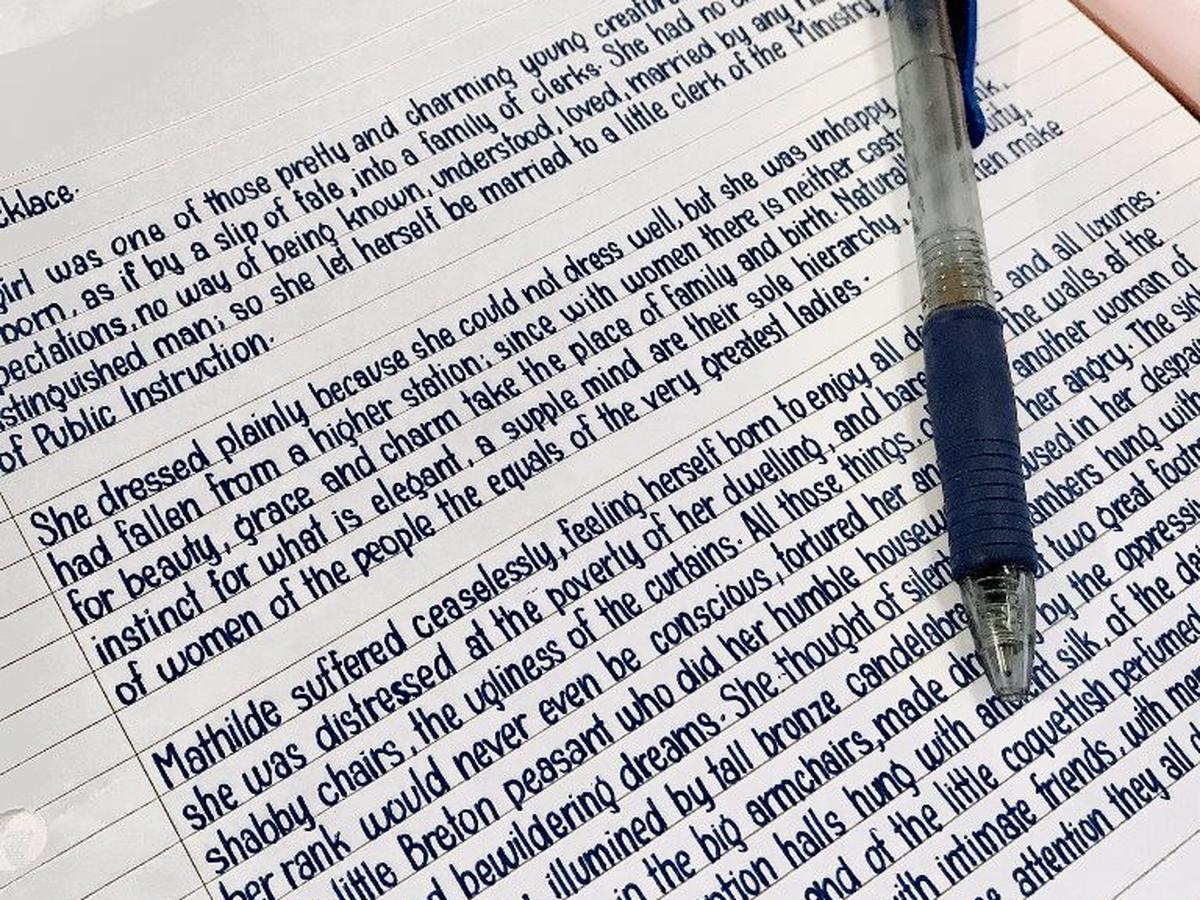 cklace.
girl was one of those pretty and charming young creature
born, as if by a slip of fate, into a family of clerks. She had no
pectations, no way of being known, understood, loved, married by any
stinguished man; so she let herself be married to a little clerk of the Ministry
of Public Instruction.
She dressed plainly because she could not dress well, but she was unhappy
had fallen from a higher station; since with women there is neither caste nk,
for beauty, grace and charm take the place of family and birth. Natural uity,
instinct for what is elegant, a supple mind are their sole hierarchy, en make
of women of the people the equals of the very greatest ladies.
Mathilde suffered ceaselessly, feeling herself born to enjoy all de s and all luxuries.
she was distressed at the poverty of her dwelling, and bare the walls, at the
shabby chairs, the ugliness of the curtains. All those things, another woman of
her rank would never even be conscious, tortured her an her angry. The
little Breton peasant who did her humble housew used in her despa
d bewildering dreams. She thought of silent ambers hung with
illumined by tall bronze candelabra two great foot
in the big armchairs, made dro by the oppressi
ption halls hung with an silk, of the
and of the little coquetish perfumed
with intimate friends, with
attention they all